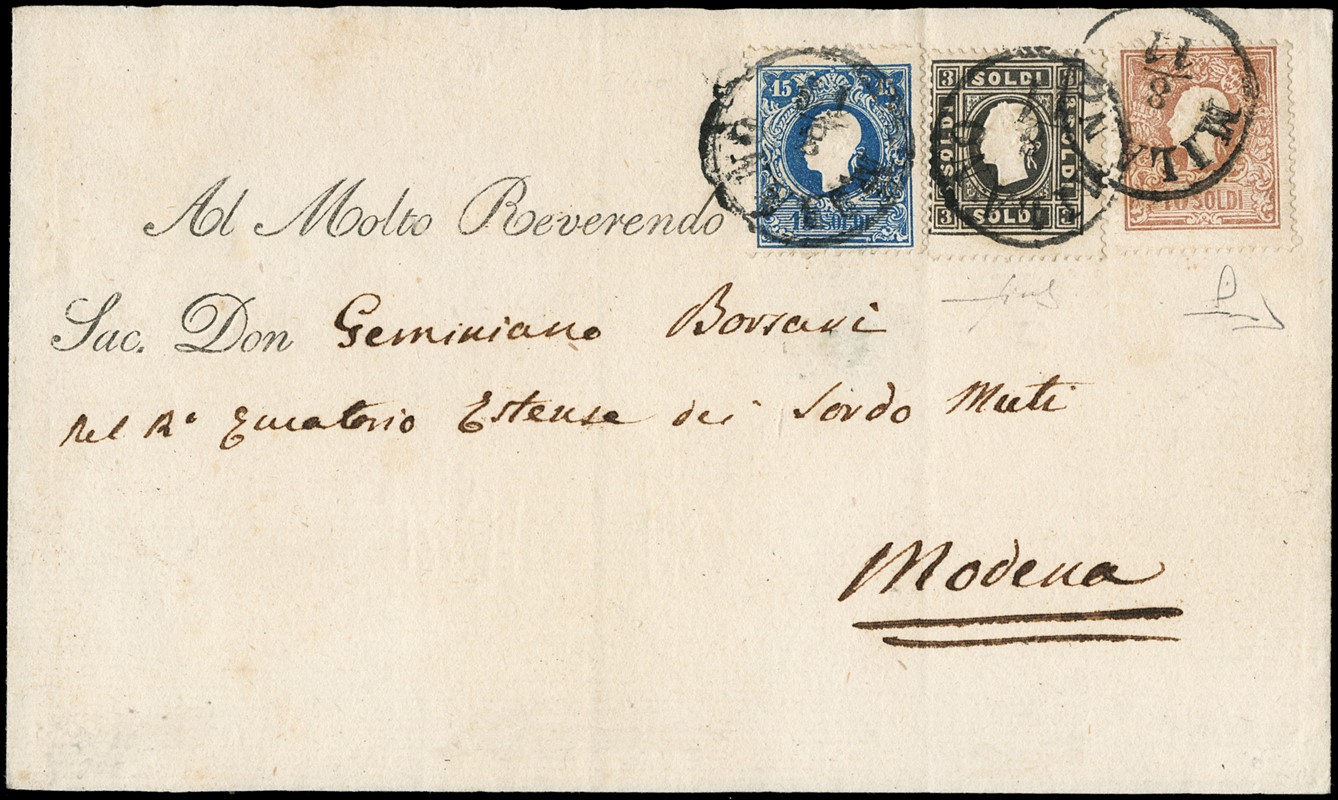 15 15
15 SOLDI
3 SOLDI 3
SOLDI SOLDI
3 SOLDI 3
10 SOLDI
MILANO
11
8
MILANO
MILANO
Al Molto Reverendo
Sac. Don Geminiano Borsari
Nel Ro Eucatorio Estense dei Sordo Muti
Modena